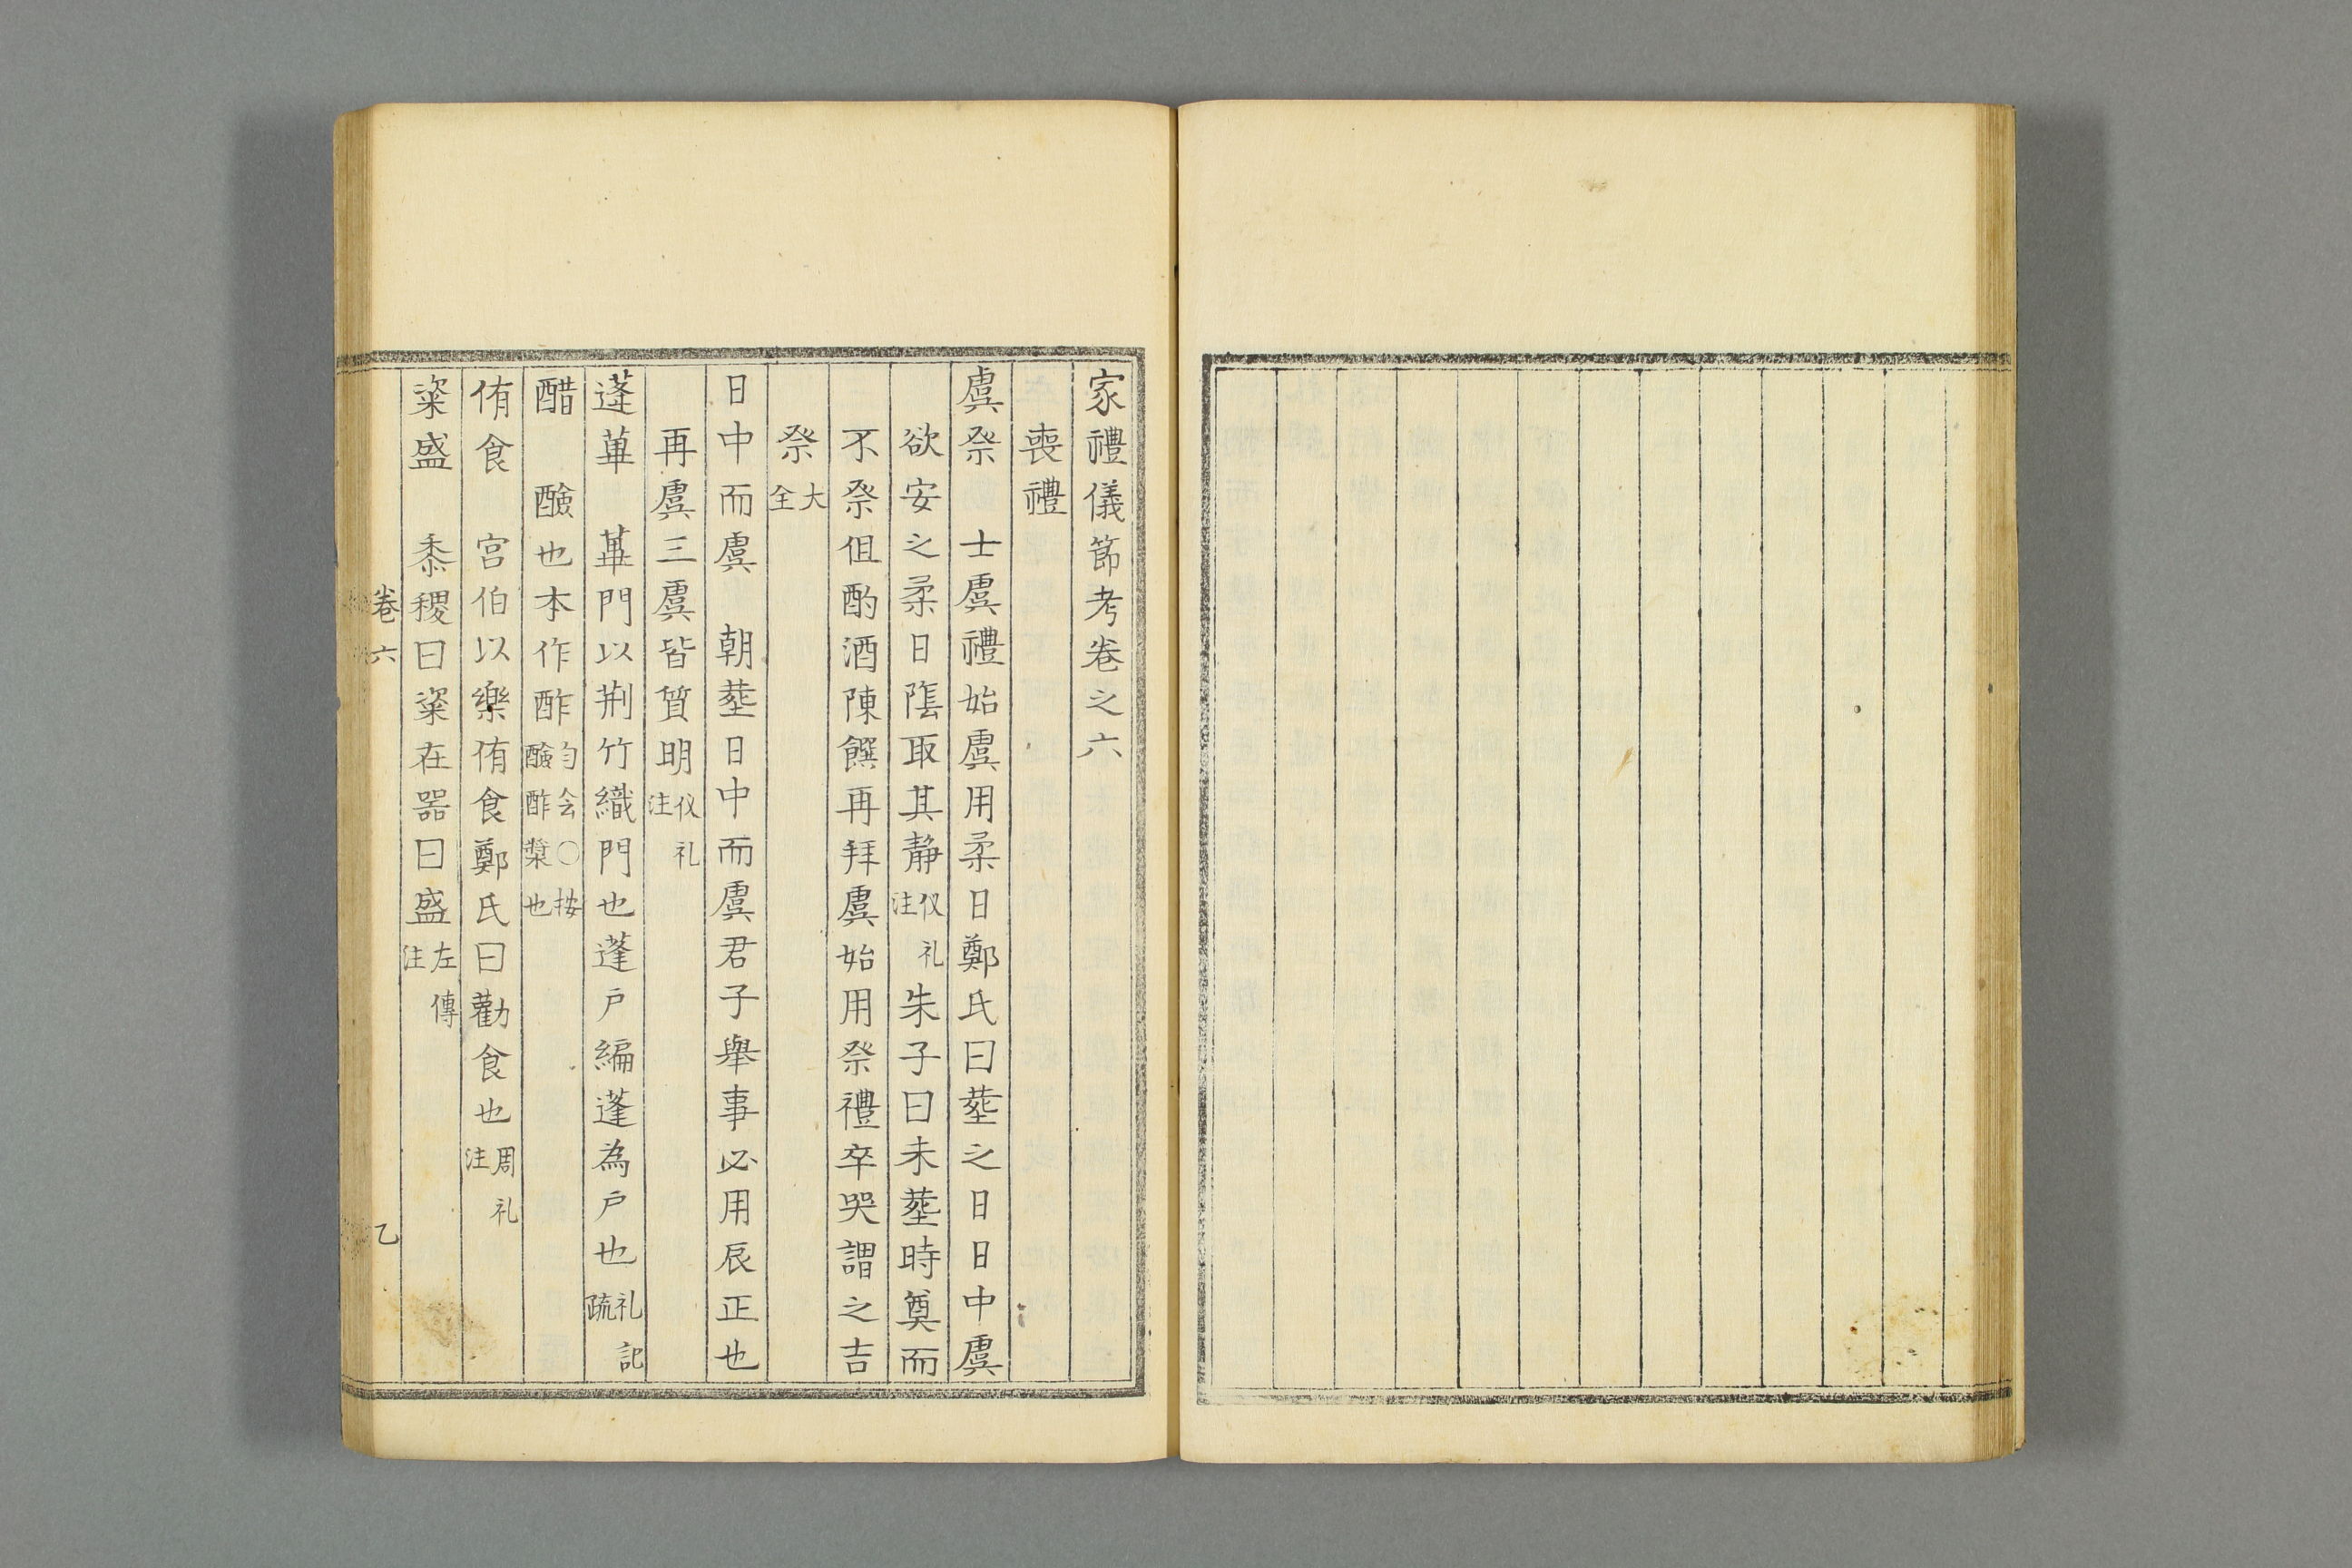 家禮儀節考卷之六
喪禮
虞祭　士虞禮始虞用柔日鄭氏曰塟之日日中虞
欲安之柔日隂取其静仪礼注朱子曰未塟時奠而
不祭但酌酒陳饌再拜虞始用祭禮卒哭謂之吉
祭大全
日中而虞　朝塟日中而虞君子舉事必用辰正也
再虞三虞皆質明仪礼注
蓬蓽　蓽門以荆竹織門也蓬户編蓬為户也礼記疏
醋　醶也本作酢匀会〇按醶酢漿也
侑食　宫伯以樂侑食鄭氏曰勸食也周礼注
粢盛　黍稷曰粢在器曰盛左傳注
卷六　乙